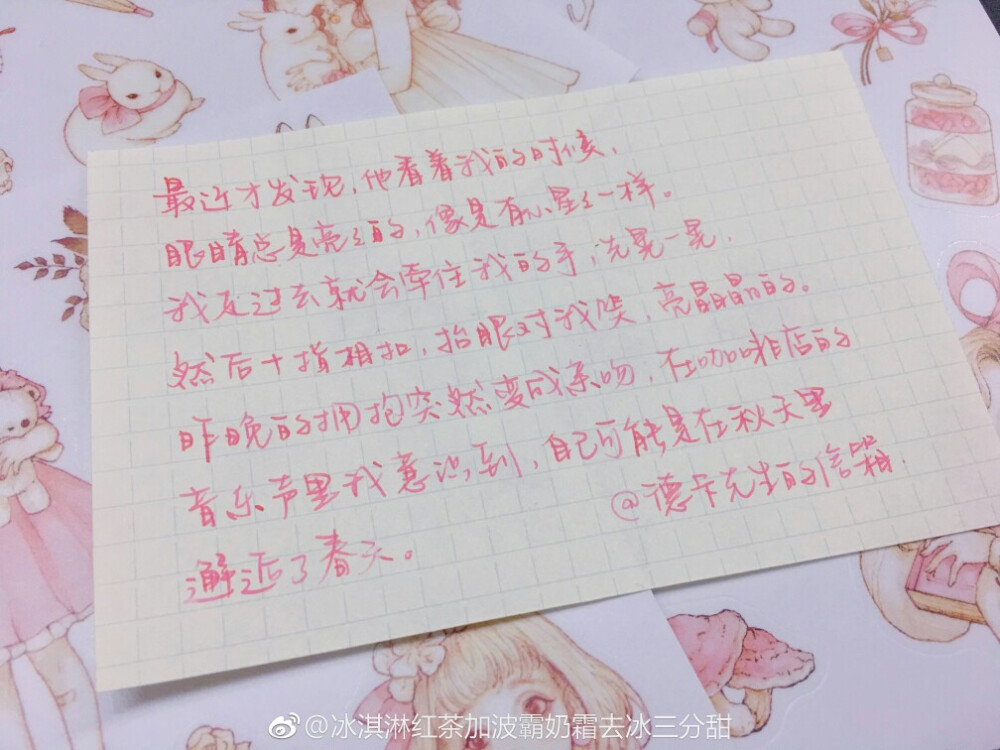 最近才发现，他看着我的时候，
眼睛总是亮亮的，像是有小星星一样。
我走过去就会牵住我的手，先晃一晃，
然后十指相扣，抬眼对我笑，亮晶晶的。
昨晚的拥抱突然变成亲吻，在咖啡店的
音乐声里我意识到，自己可能是在秋天里
邂逅了春天。
@德卡先生的信箱.
@冰淇淋红茶加波霸奶霜去冰三分甜